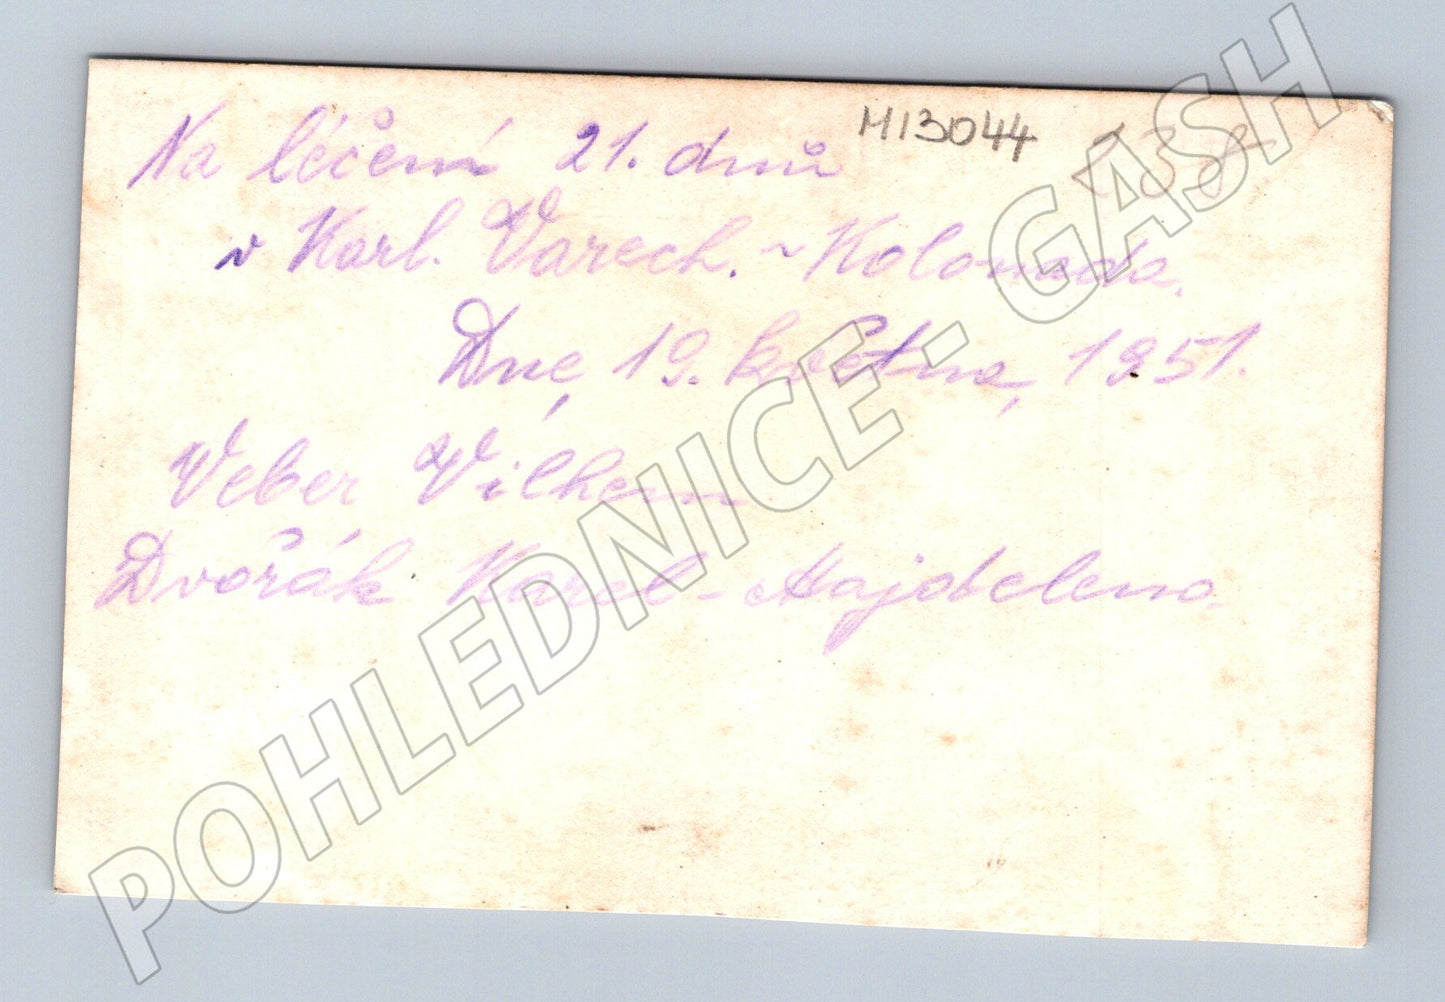 M13044
Na léčení 21. dnů
v Karl. Varech. ~ Kolonada.
Dne, 19. května, 1951.
Veber Vilhem
Dvořák Karel - Majdelena.
POHLEDNICE - GASH